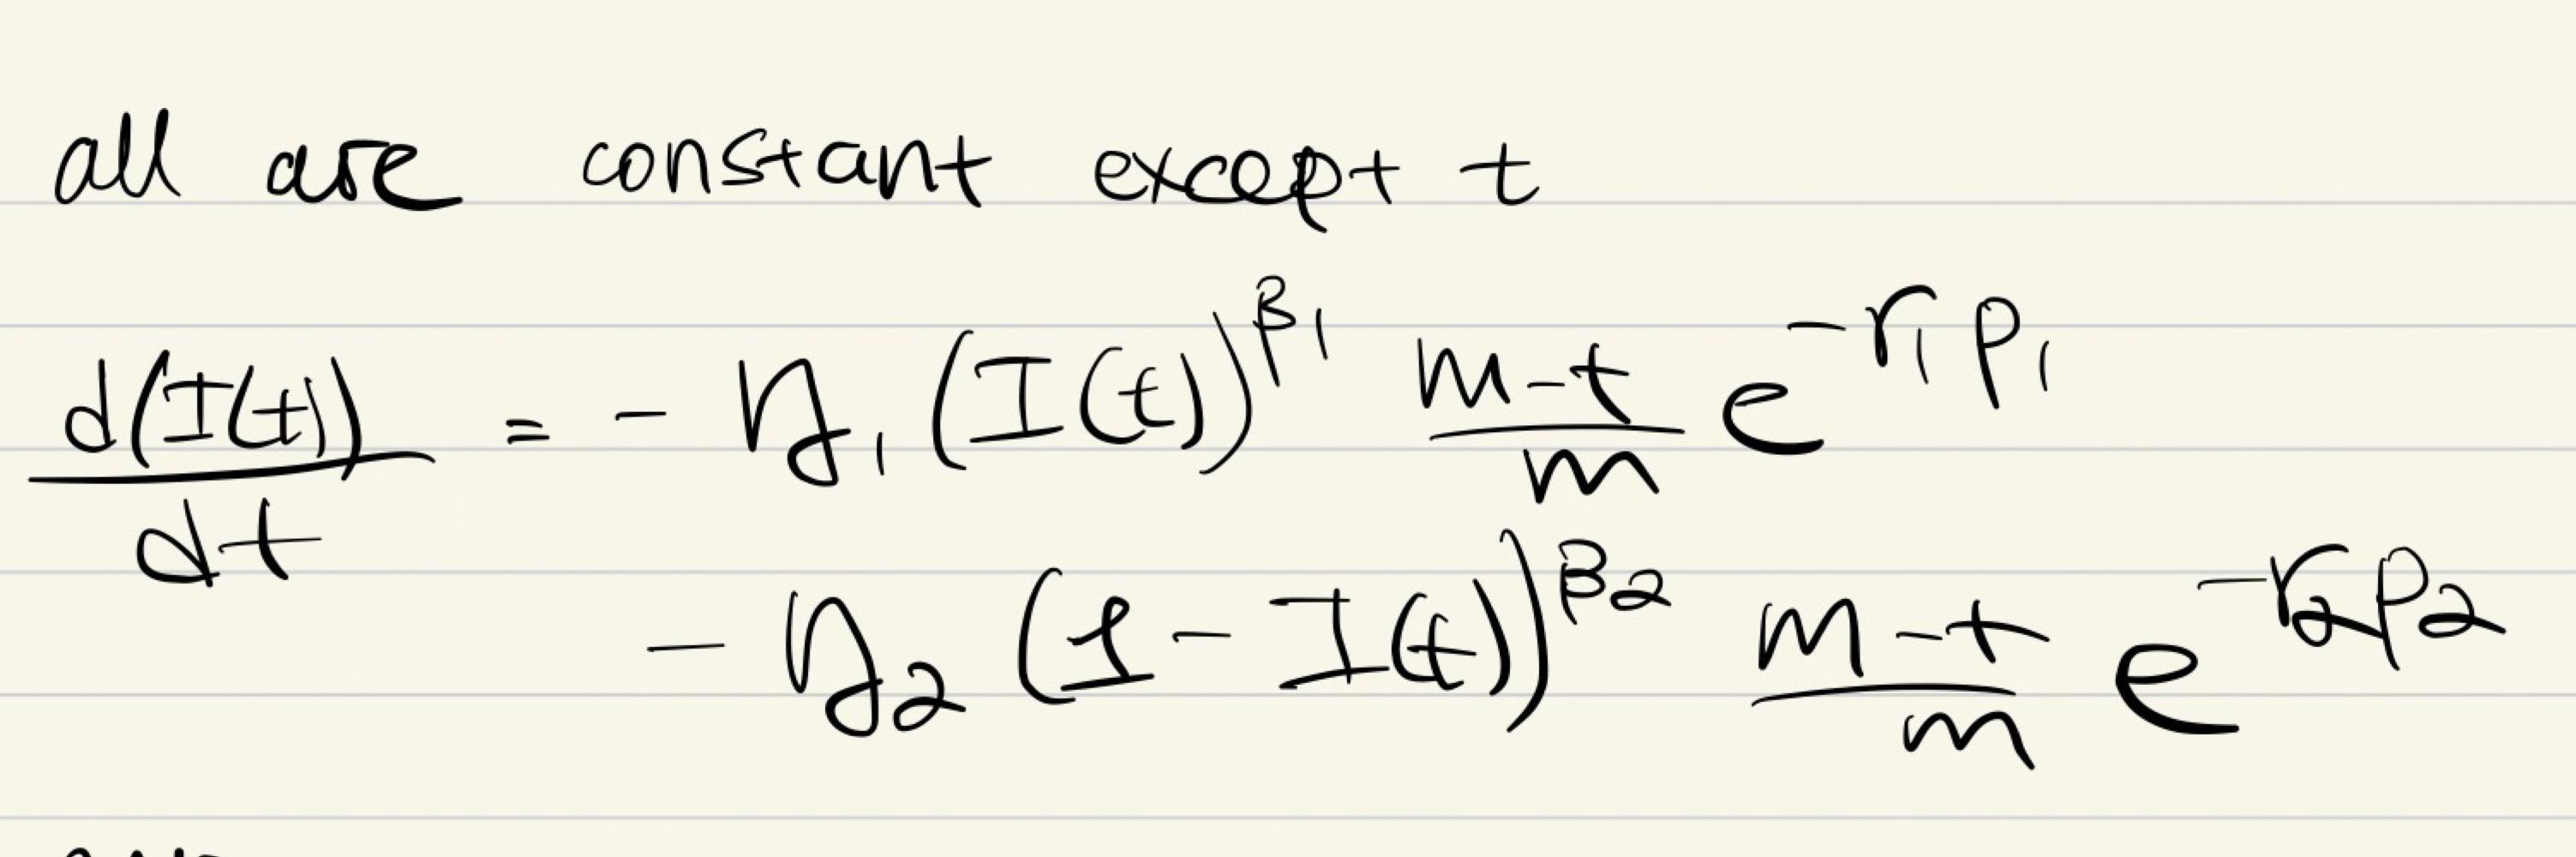 all are constant except t
d(I(t))/dt = - η₁ (I(t))^β₁ (m-t)/m e^(-r₁p₁)
- η₂ (1 - I(t))^β₂ (m-t)/m e^(-r₂p₂)